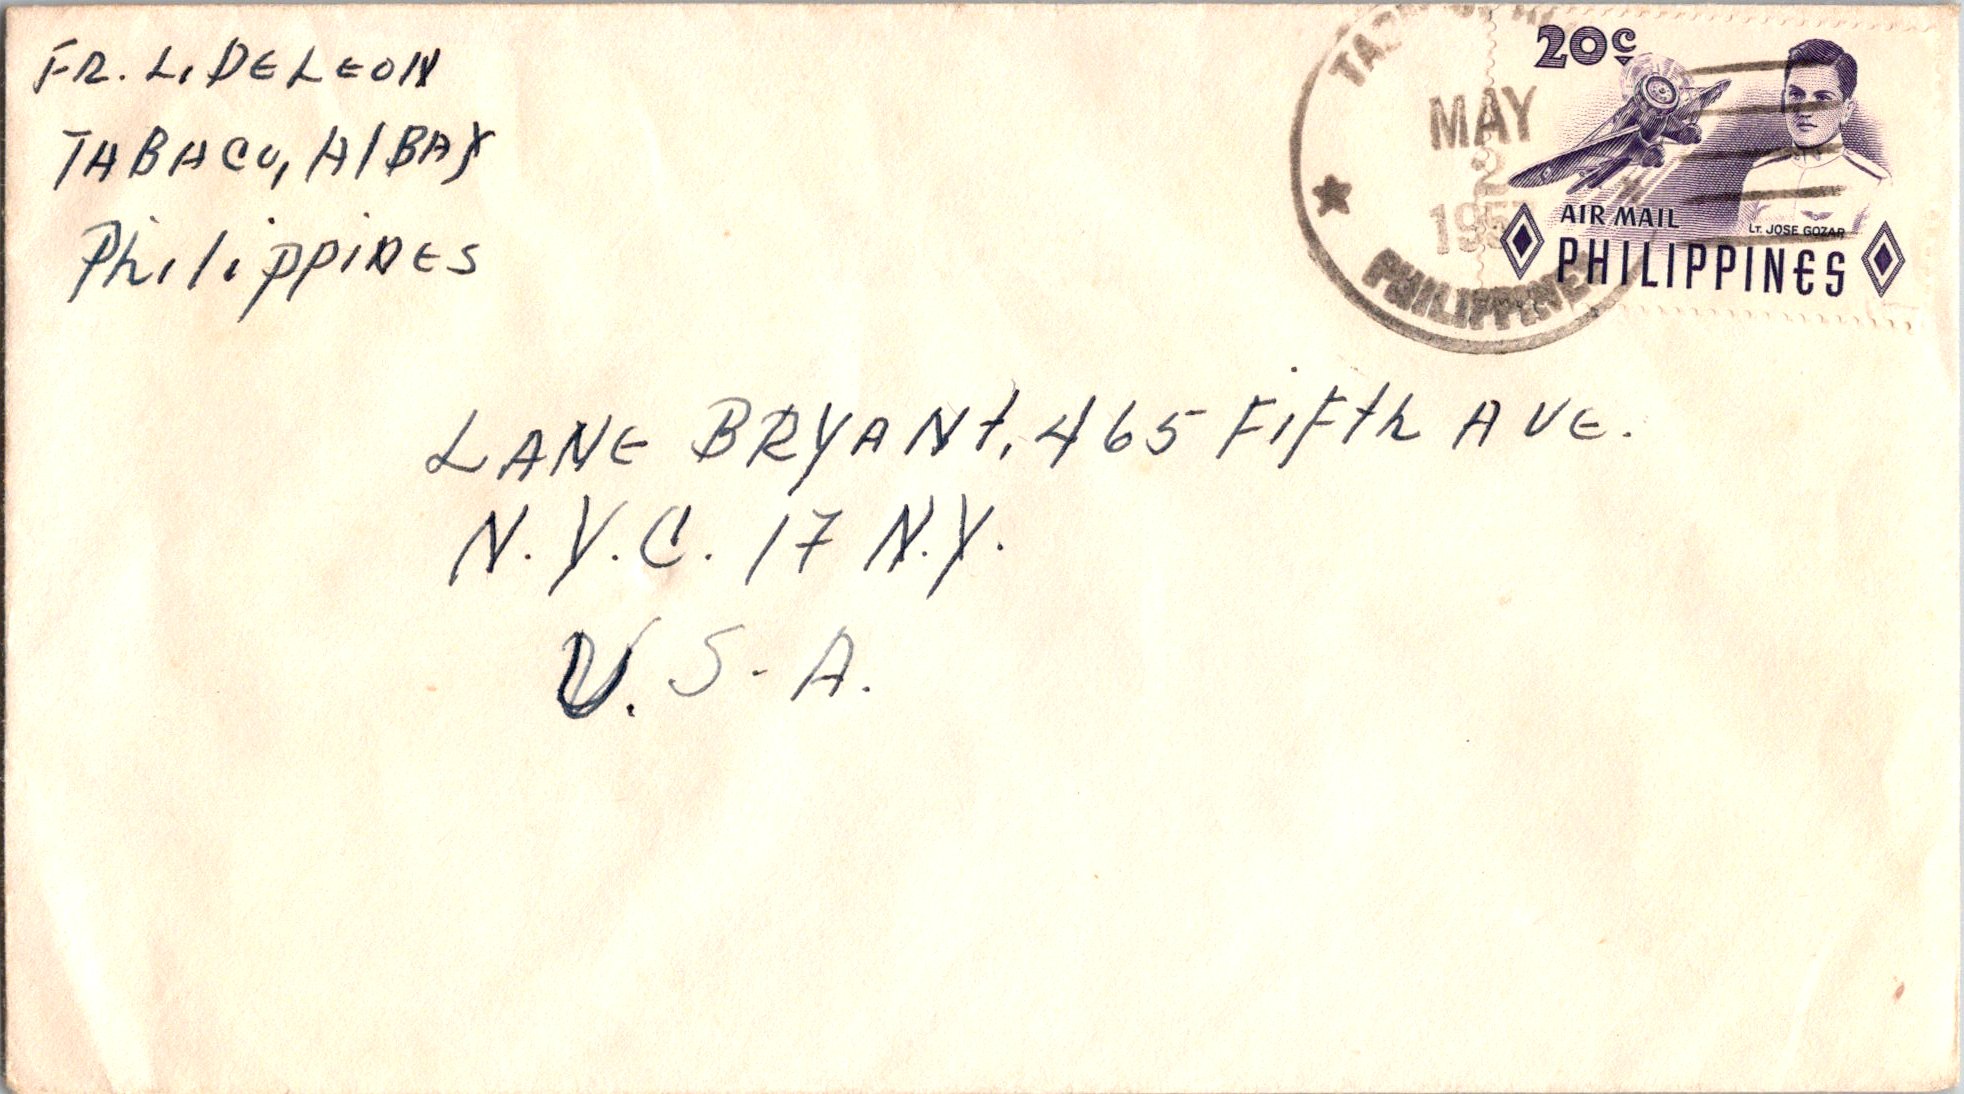 FR. L. DELEON
TABACO, AlBAY
Philippines
MAY
2
PHILIPPINES
20c
AIR MAIL
LT. JOSE GOZAR
PHILIPPINES
LANE BRYANt, 465 FiFth AVE.
N.Y.C. 17 N.Y.
U.S.A.